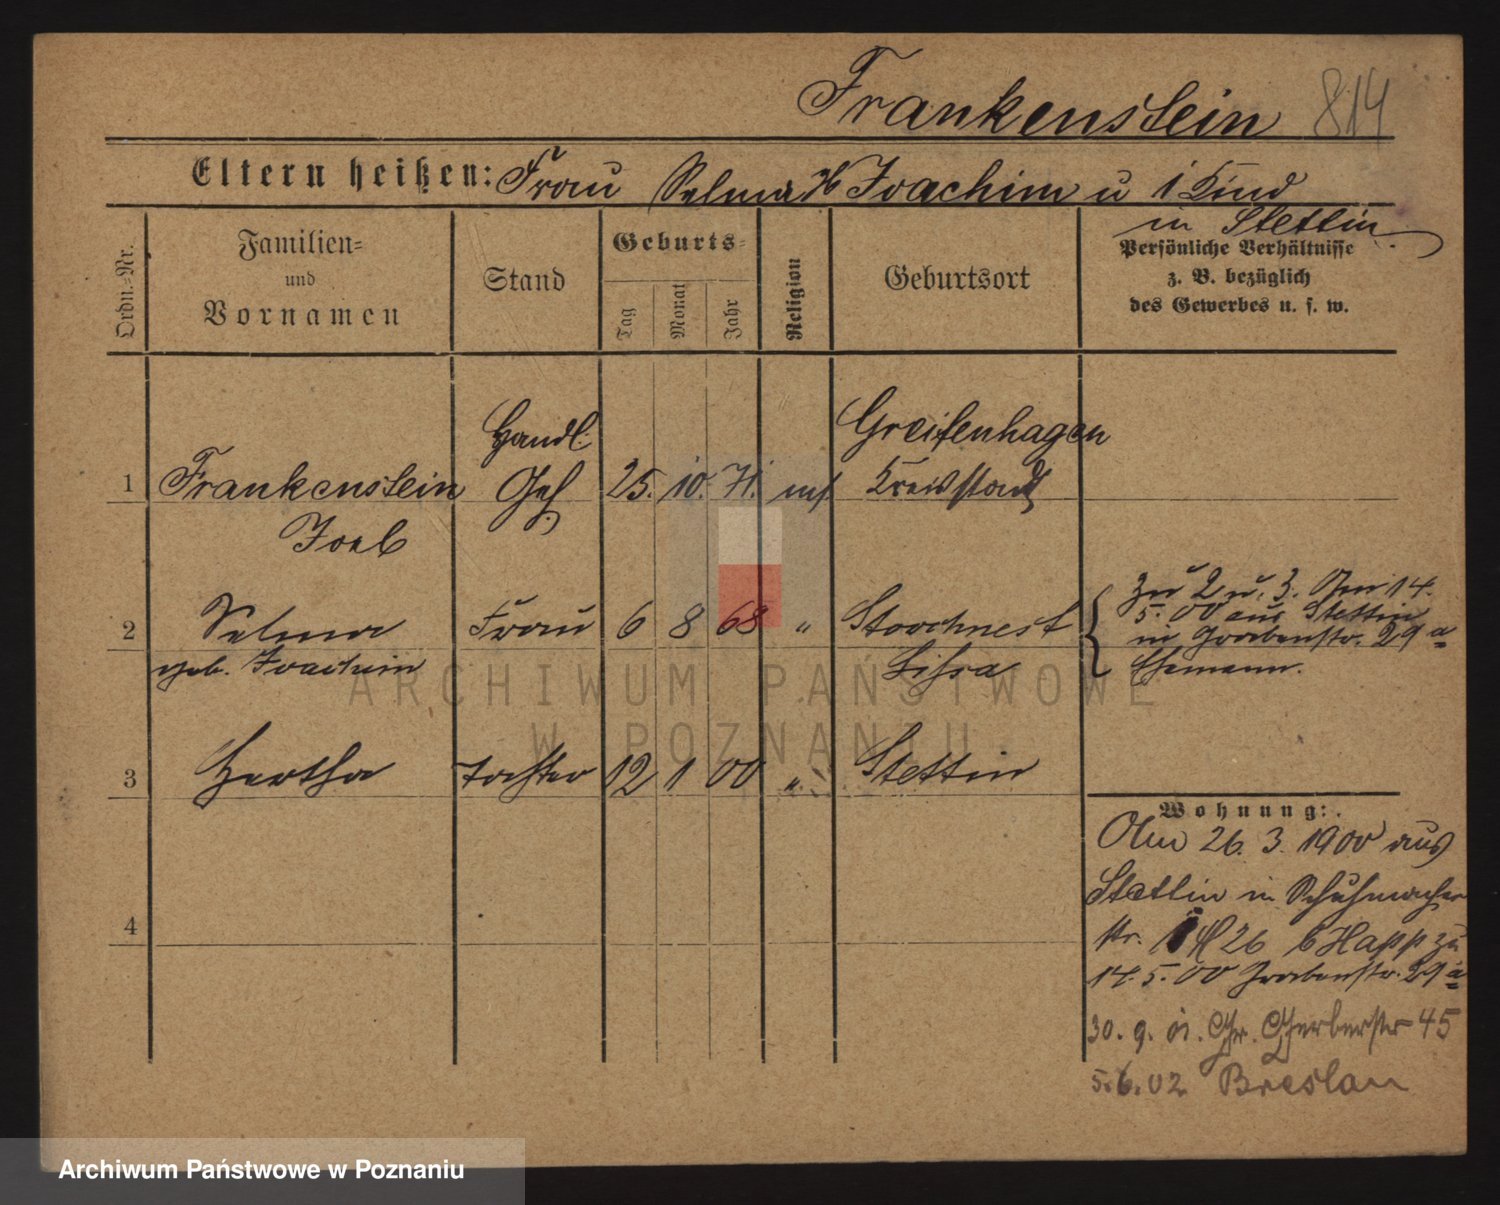 Frankenstein 814
Eltern heißen: Frau Selma Joachim u 1 Kind
in Stettin
Ordn.-Nr.
Familien-
und
Vornamen
Stand
Geburts-
Tag
Monat
Jahr
Religion
Geburtsort
Persönliche Verhältnisse
z. B. bezüglich
des Gewerbes u. s. w.
1 Frankenstein Handl. Geh 25. 10. 71. mos Greifenhagen
Kreisstadt
Joel
2 Selma Frau 6 8 68 " Storchnest
geb. Joachim Lissa
zu 2 u. 3. Am 14.
5. 00 aus Stettin
in Grabenstr. 29a
Ehemann.
3 Hertha Tochter 12 1 00 " Stettin
4
Wohnung:
Am 26. 3. 1900 aus
Stettin in Schuhmacher
str. 26 b Happ zu
14. 5. 00 Grabenstr. 29a
30. 9. 01. Gr. Gerberstr 45
5. 6. 02 Breslau
ARCHIWUM PAŃSTWOWE
W POZNANIU
Archiwum Państwowe w Poznaniu